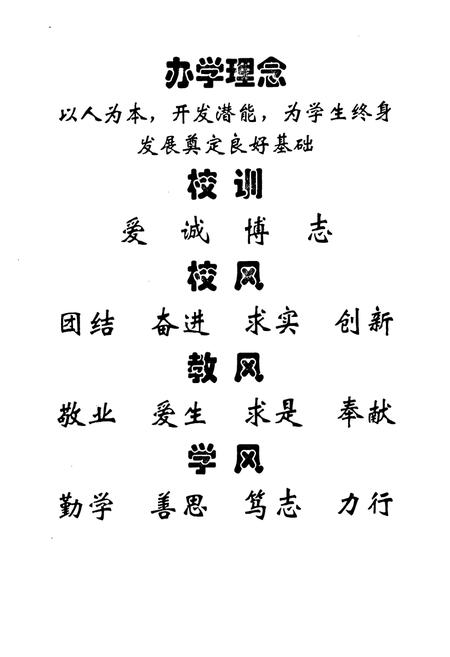 办学理念
以人为本，开发潜能，为学生终身
发展奠定良好基础
校训
爱 诚 博 志
校风
团结 奋进 求实 创新
教风
敬业 爱生 求是 奉献
学风
勤学 善思 笃志 力行